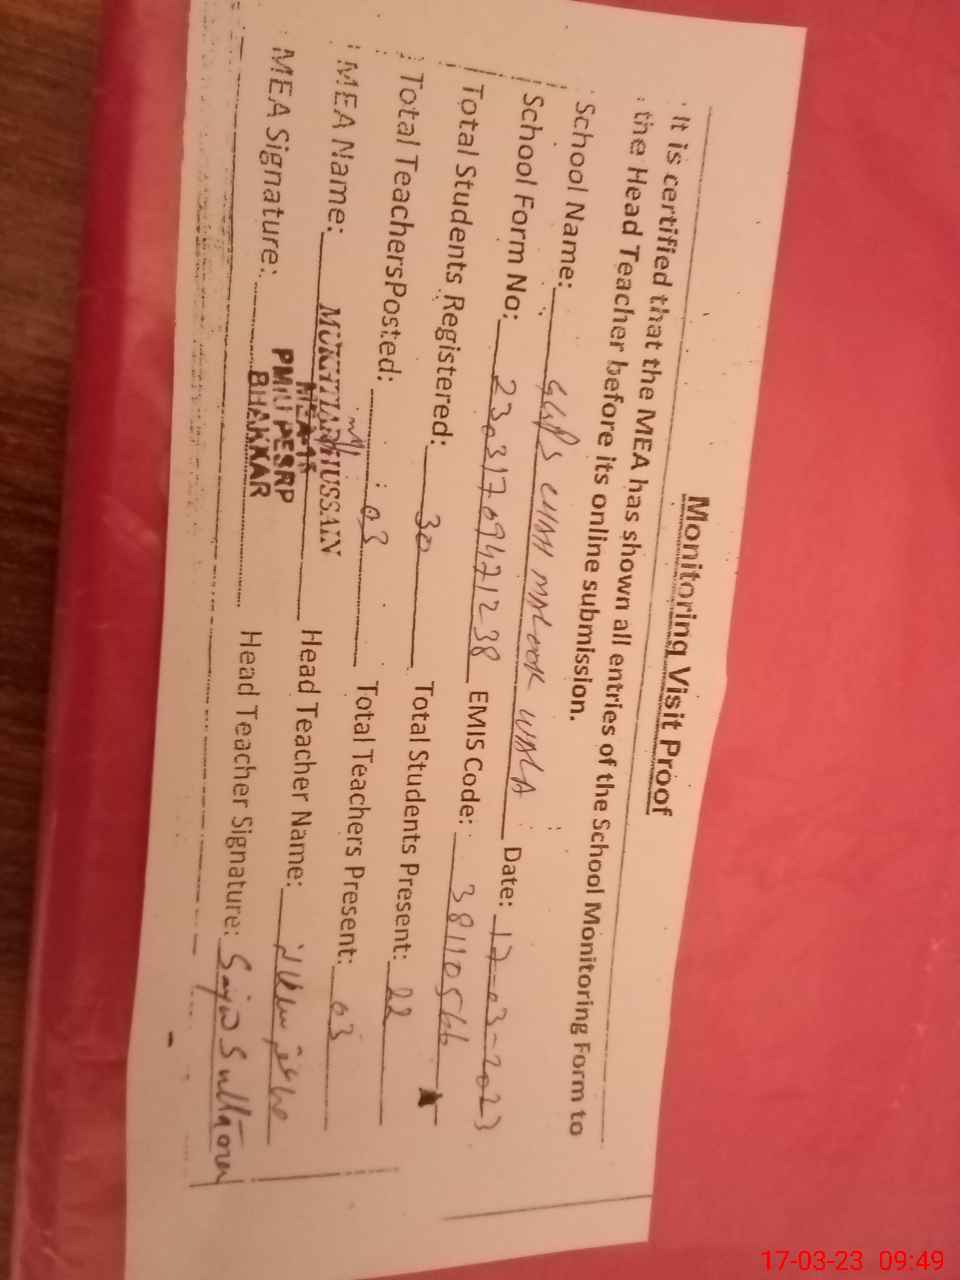 Monitoring Visit Proof
It is certified that the MEA has shown all entries of the School Monitoring Form to
the Head Teacher before its online submission.
School Name: GGPS CHAH MALOOK WALA Date: 17-03-2023
School Form No: 23031709471238 EMIS Code: 38110566
Total Students Registered: 30 Total Students Present: 22
Total TeachersPosted: 03 Total Teachers Present: 03
MEA Name: MUKHTIAR HUSSAIN Head Teacher Name:
MEA-15
MEA Signature: PMIU PESRP Head Teacher Signature: Sajid Sultana
BHAKKAR
17-03-23 09:49